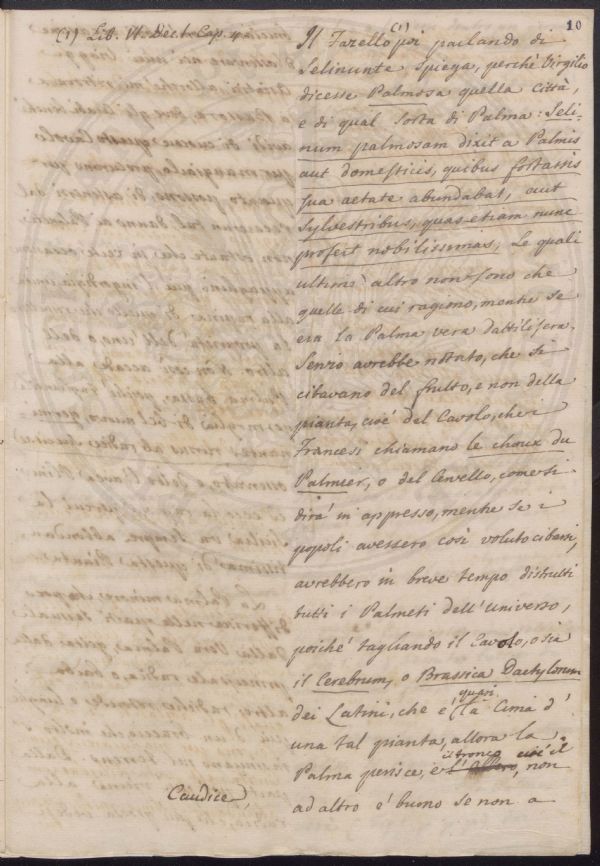 10
(1) Lib. VI. Dec. 1. Cap. 4
Il Fazello (1) poi parlando di
Selinunte spiega, perchè Virgilio
dicesse Palmosa quella Città,
e di qual sorta di Palma: Seli-
num palmosam dixit a Palmis
aut domesticis, quibus fortassis
sua aetate abundabat, aut
sylvestribus, quas etiam nunc
profert nobilissimas, Le quali
ultime altro non sono che
quelle di cui ragiono, mentre se
era la Palma vera dattilifera,
Servio avrebbe notato, che si
cibavano del frutto, e non della
pianta, cioè del Cavolo, che i
Francesi chiamano le choux du
Palmier, o del Cervello, come si
dirà in appresso, mentre se i
popoli avessero così voluto cibarsi,
avrebbero in breve tempo distrutti
tutti i Palmeti dell'universo,
poichè tagliando il Cavolo, o sia
il Cerebrum, o Brassica Dactylorum
dei Latini, che è quasi la Cima d'
una tal pianta, allora la
Palma perisce, e il tronco cioè il
Caudice, non
ad altro è buono se non a